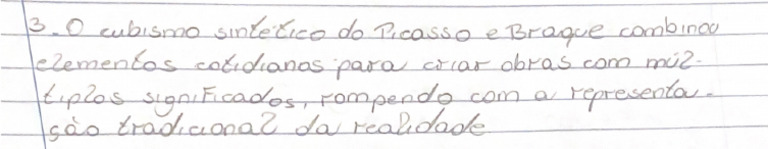 3. O cubismo sintético do Picasso e Braque combinou
elementos cotidianos para criar obras com múl-
tiplos significados, rompendo com a representa-
ção tradicional da realidade